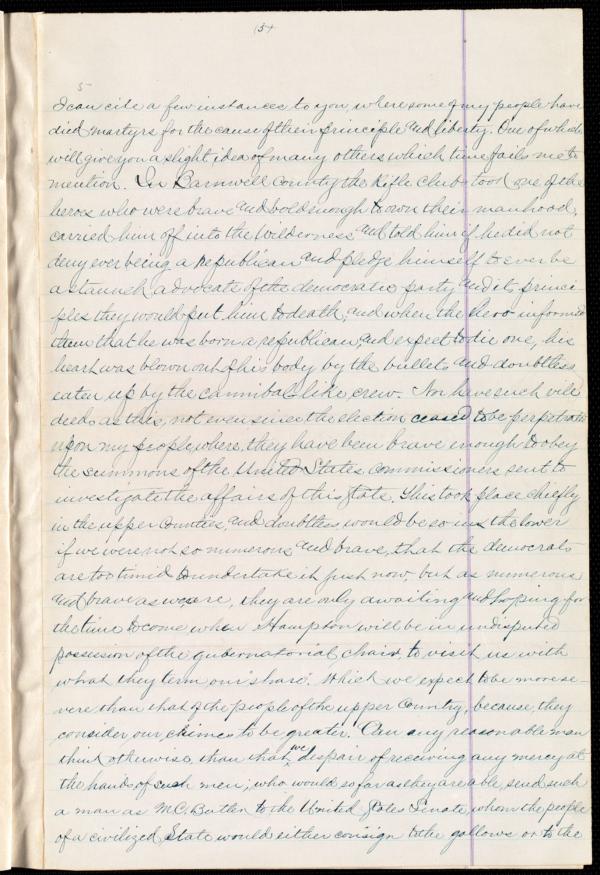 154
5
I can cite a few instances to you, where some of my people have
died martyrs for the cause of their principle and liberty. One of which
will give you a slight idea of many others which time fails me to
mention. In Barnwell County the Rifle Clubs took one of the
heroes who were brave and bold enough to own their manhood,
carried him off into the Wilderness and told him if he did not
deny ever being a republican and pledge himself to ever be
a staunch advocate of the democratic party and it princi-
ples they would put him to death, and when the hero informed
them that he was born a republican, and expect to die one, his
heart was blown out of his body by the bullets and doubtless
eaten up by the cannibal like crew. Nor have such vile
deeds as this, not even since the election ceased to be perpetrated
upon my people where, they have been brave enough to obey
the summons of the United States commissioners sent to
investigate the affairs of this State. This took place chiefly
in the upper Counties, and doubtless would be so in the lower
if we were not so numerous and brave, that the democrats
are too timid to undertake it just now, but as numerous
and brave as we are, they are only awaiting and hoping for
the time to come when Hampton will be in undisputed
possession of the gubernatorial chair, to visit us with
what they term our share. Which we expect to be more se-
vere than that of the people of the upper Country, because, they
consider our crimes to be greater. Can any reasonable man
think otherwise, than that we despair of receiving any mercy at
the hands of such men; who would so far as they are able, send such
a man as M.C. Butler to the United States Senate, whom the people
of a civilized State would either consign to the gallows or to the